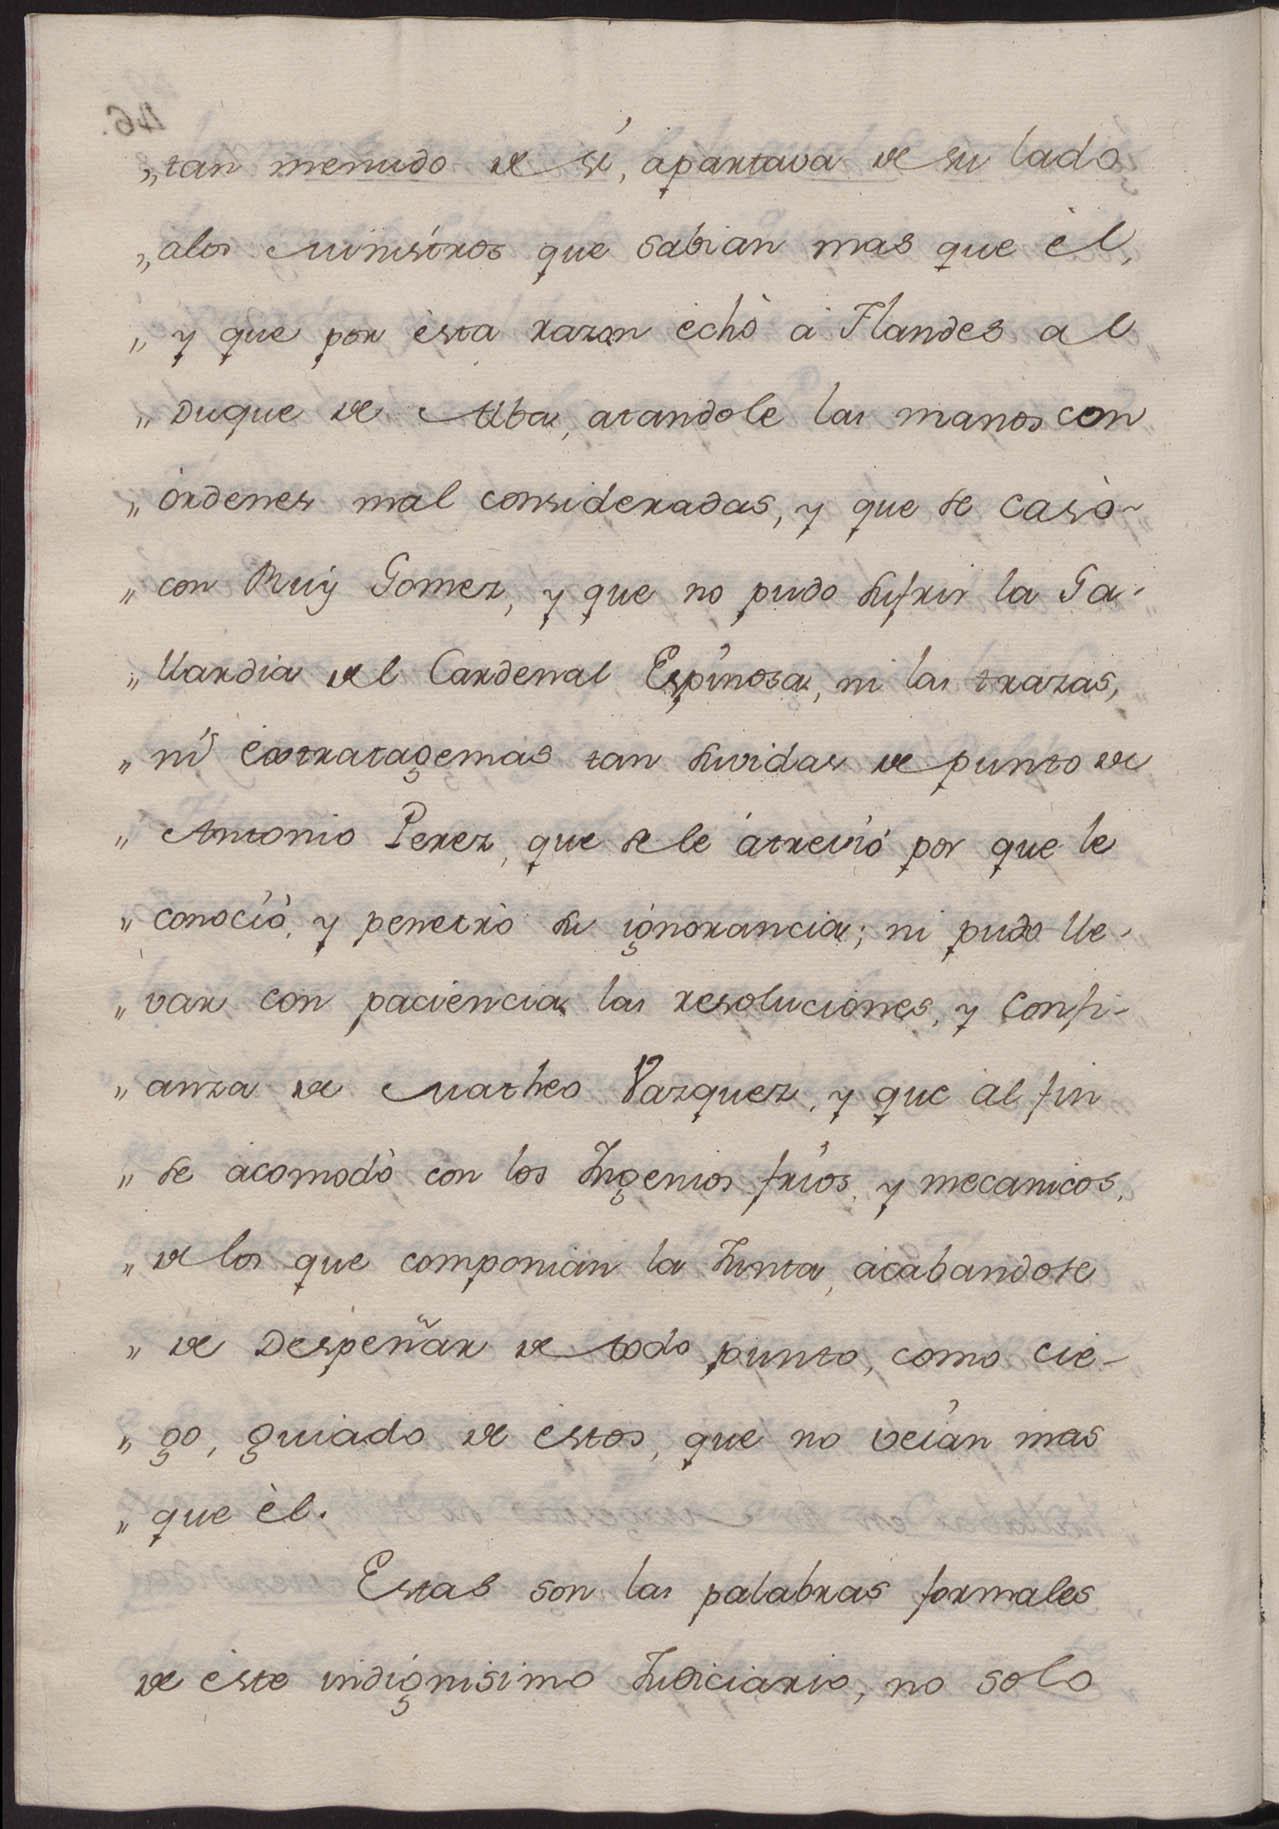 „tan menudo de sí, apartava de su lado
„alos Ministros que sabian mas que èl,
„ y que por èsta razon echò à Flandes al
„ Duque de Alba, atandole las manos con
„ òrdenes mal consideradas, y que se casò
„ con Ruÿ Gomez, y que no pudo sufrir la Ga-
„ llardia del Cardenal Espinosa, ni las trazas,
„ ni extratagemas tan suvidas de punto de
„ Antonio Perez, que se le atreviò por que le
„ conociò, y penetrò su ignorancia; ni pudo lle-
„ var con paciencia las resoluciones, y confi-
„ anza de Matheo Vazquez, y que al fin
„ se acomodò con los Ingenios frios, y mecanicos,
„ de los que componian la Junta, acabandose
„ de Despeñar de todo punto, como cie-
„ go, guiado de èstos, que no veían mas
„ que èl.
Estas son las palabras formales
de èste indignisimo Judiciario, no solo